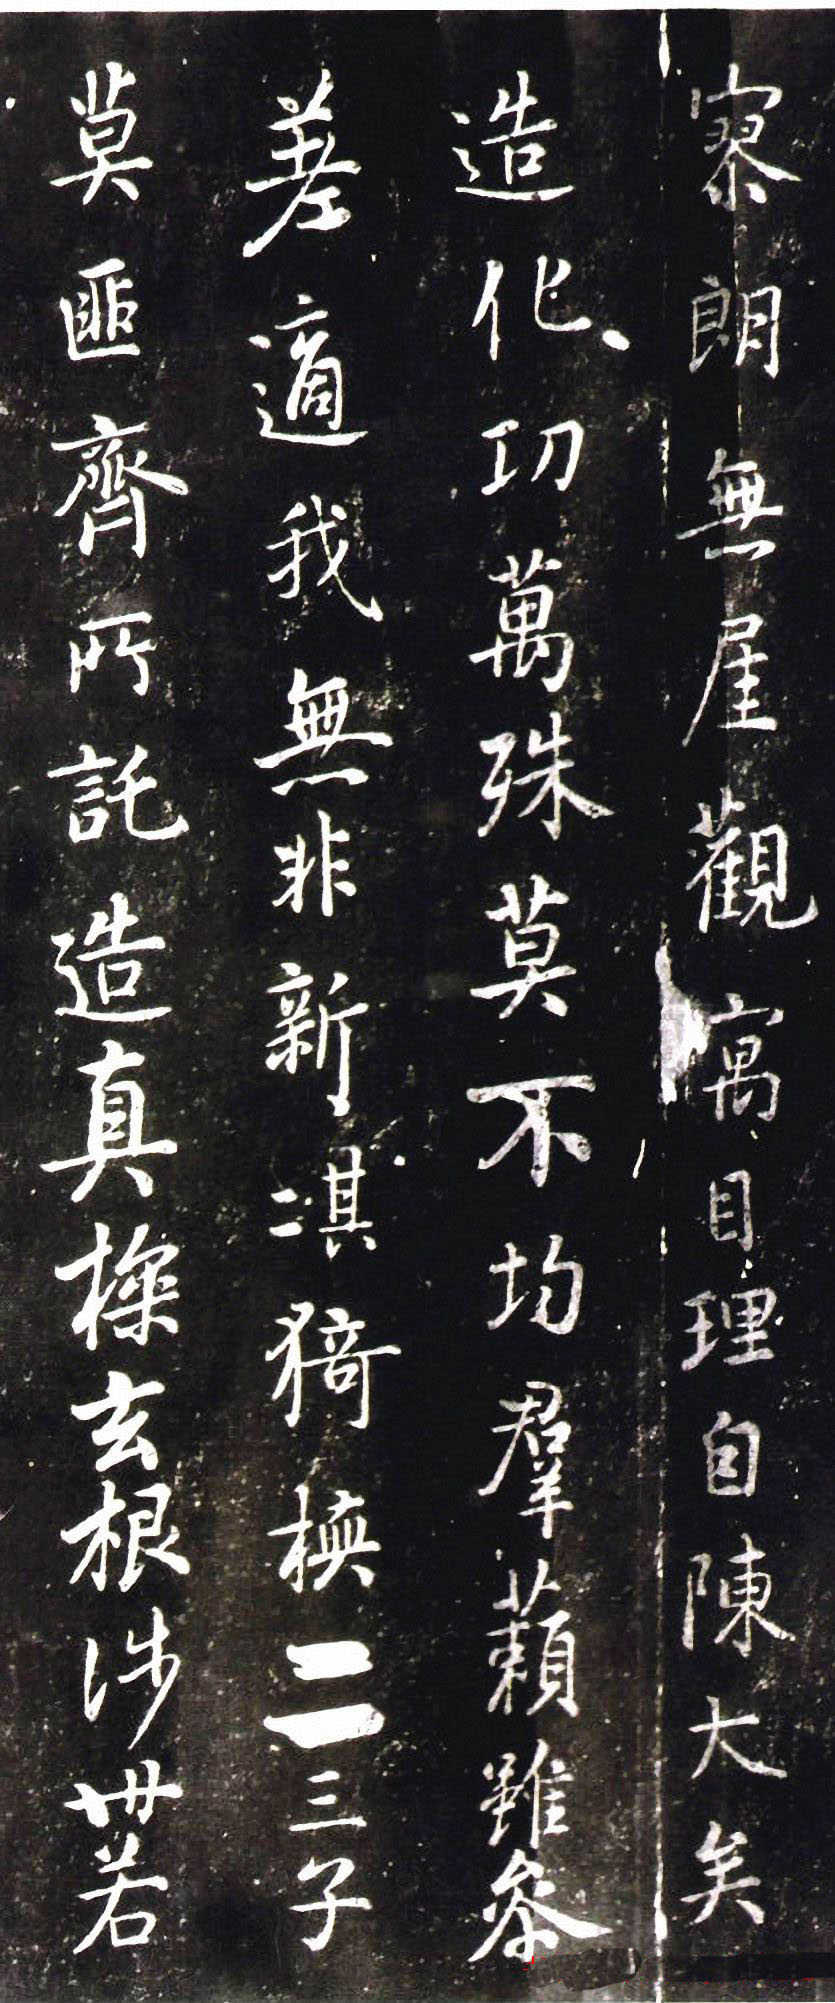 寥朗無厓觀寓目理自陳大矣
造化功萬殊莫不均群藾雖參
差適我無非新淇猗橅二三子
莫匪齊所託造真探玄根涉世若